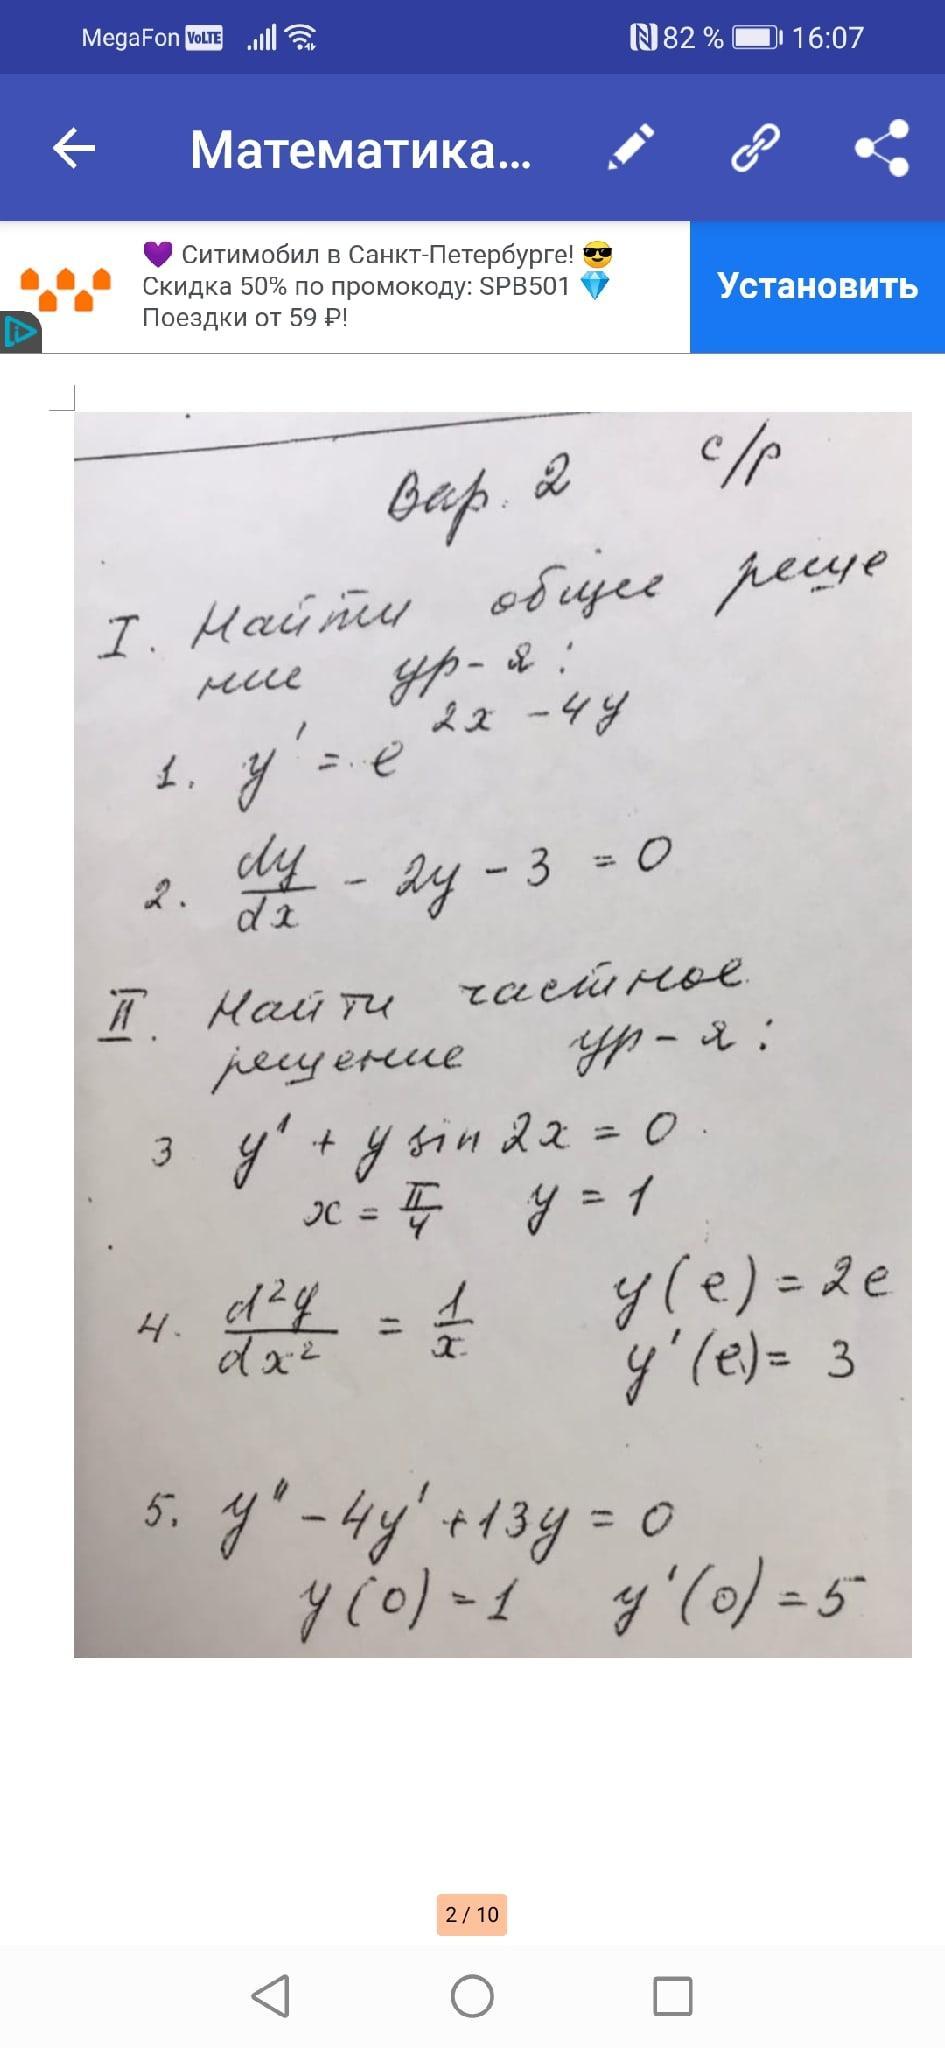 MegaFon VoLTE 82 % 16:07
Математика...
💜 Ситимобил в Санкт-Петербурге! 😎
Скидка 50% по промокоду: SPB501 💎
Поездки от 59 ₽!
Установить
Вар. 2 с/р
I. Найти общее реше
ние ур-я:
1. y' = e^(2x - 4y)
2. dy/dx - 2y - 3 = 0
II. Найти частное
решение ур-я:
3 y' + y sin 2x = 0.
x = π/4 y = 1
4. d²y/dx² = 1/x y(e) = 2e
y'(e) = 3
5. y'' - 4y' + 13y = 0
y(0) = 1 y'(0) = 5
2 / 10